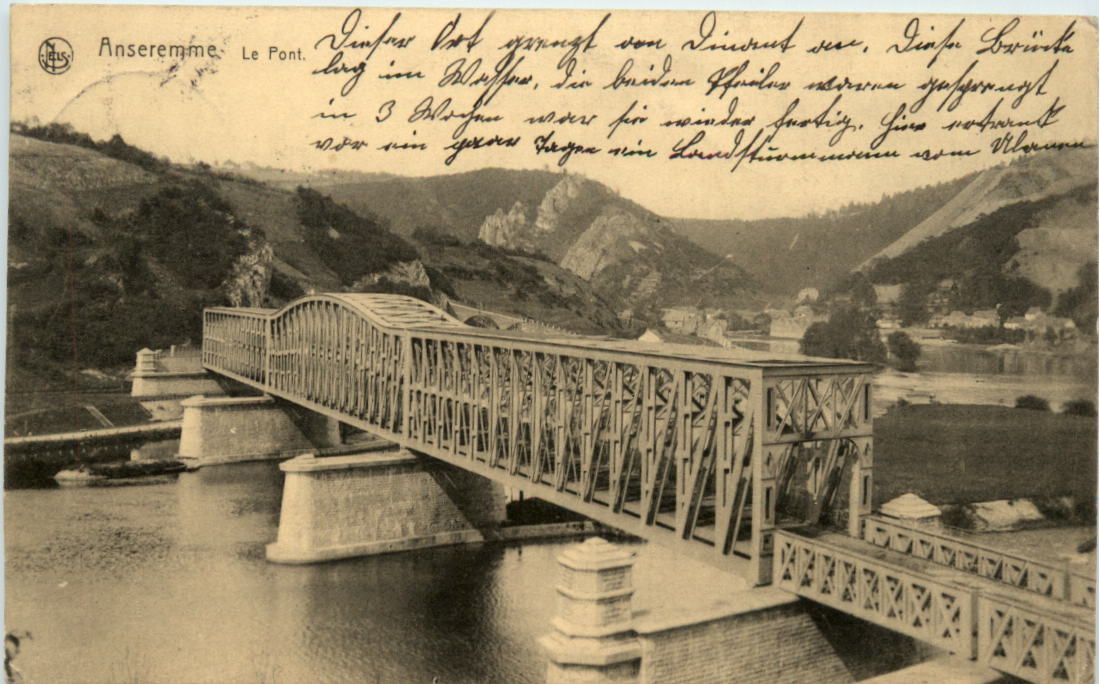 NELS
Anseremme Le Pont.
Dieser Ort grenzt von Dinant an. Diese Brücke
lag im Wasser, die beiden Pfeiler waren gesprengt
in 3 Wochen war sie wieder fertig. Hier ertrank
vor ein paar Tagen ein Landsturmmann vom Ulanen